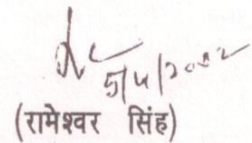 5/4/2002
(रामेश्वर सिंह)